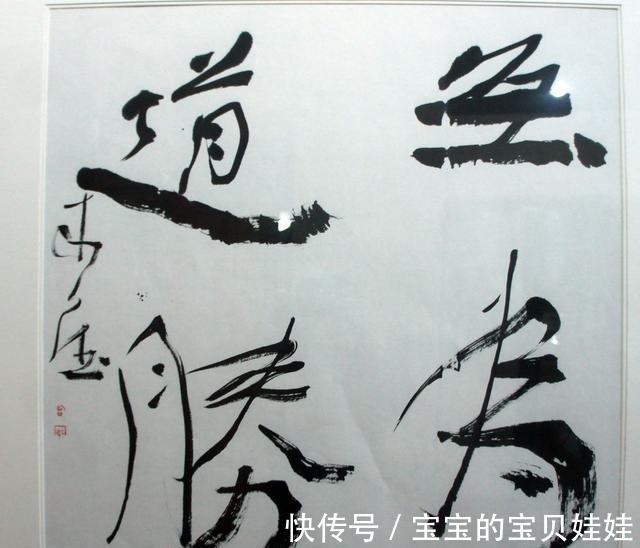 無為
道勝
快传号 / 宝宝的宝贝娃娃